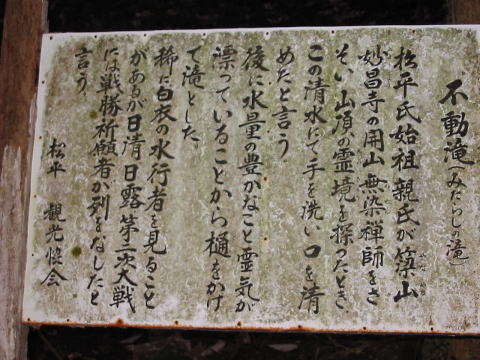 不動滝(みたらしの滝)
松平氏始祖親氏が築山
妙昌寺の開山無染禅師をさ
そい山頂の霊境を探ったとき
この清水にて手を洗い口を清
めたと言う
後に水量の豊かなこと霊気が
漂っていることから樋をかけ
て滝とした
稀に白衣の水行者を見ること
があるが日清日露第二次大戦
には戦勝祈願者が列をなしたと
言う
松平 観光協会